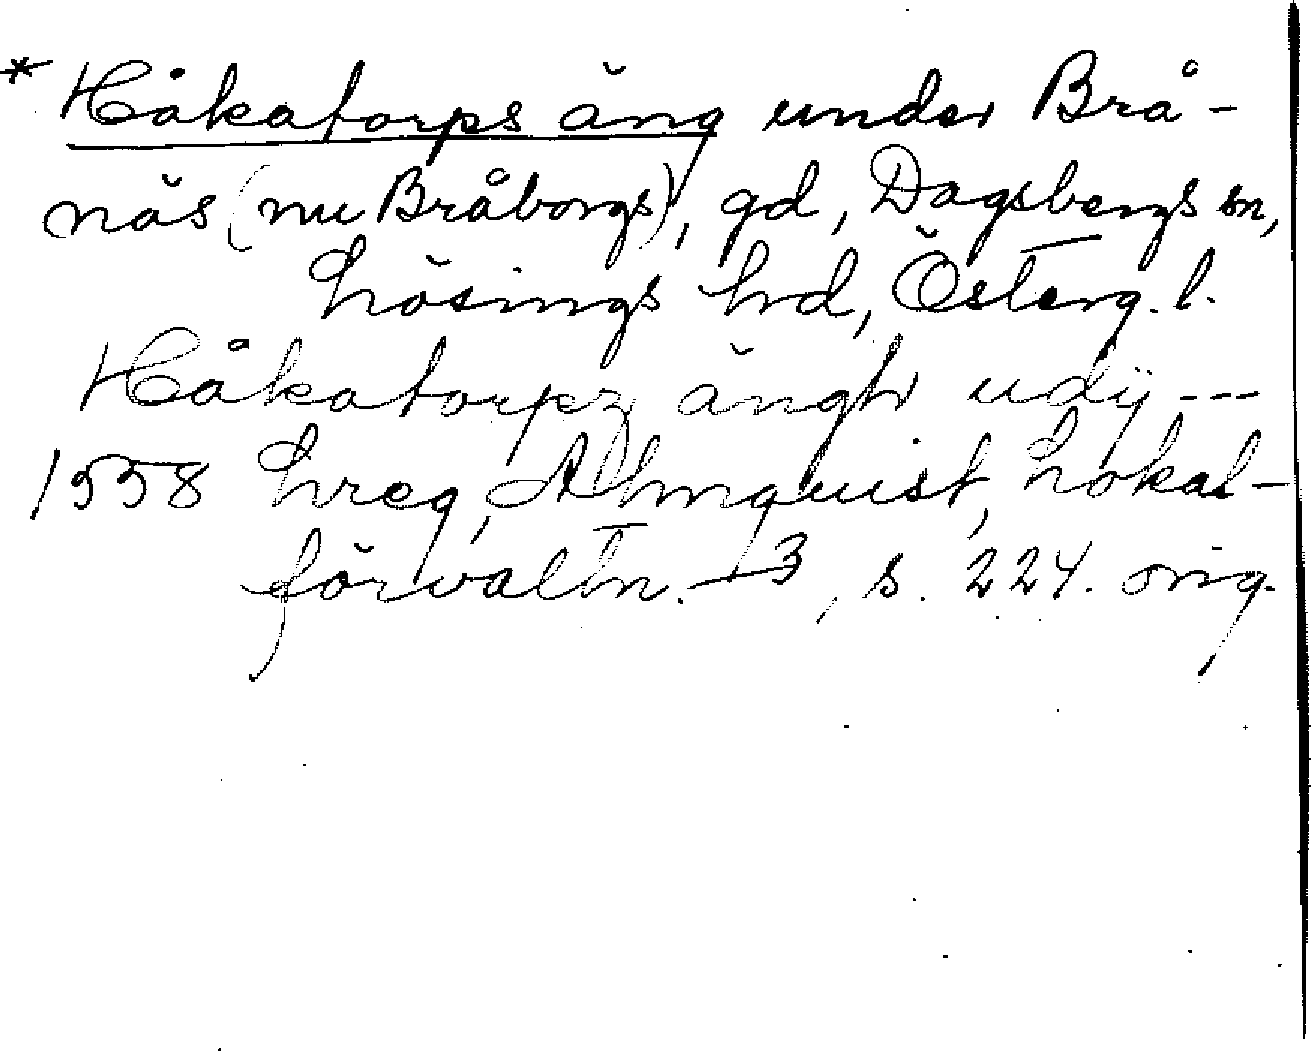 * Håkatorps äng under Brå-
näs (nu Bråborgs), gd, Dagsbergs sn,
Lösings hrd, Österg. l.
Håkatorpz ängh udij ---
1558 Lreg, Almquist, Lokal-
förvaltn. 13, s. 224. orig.